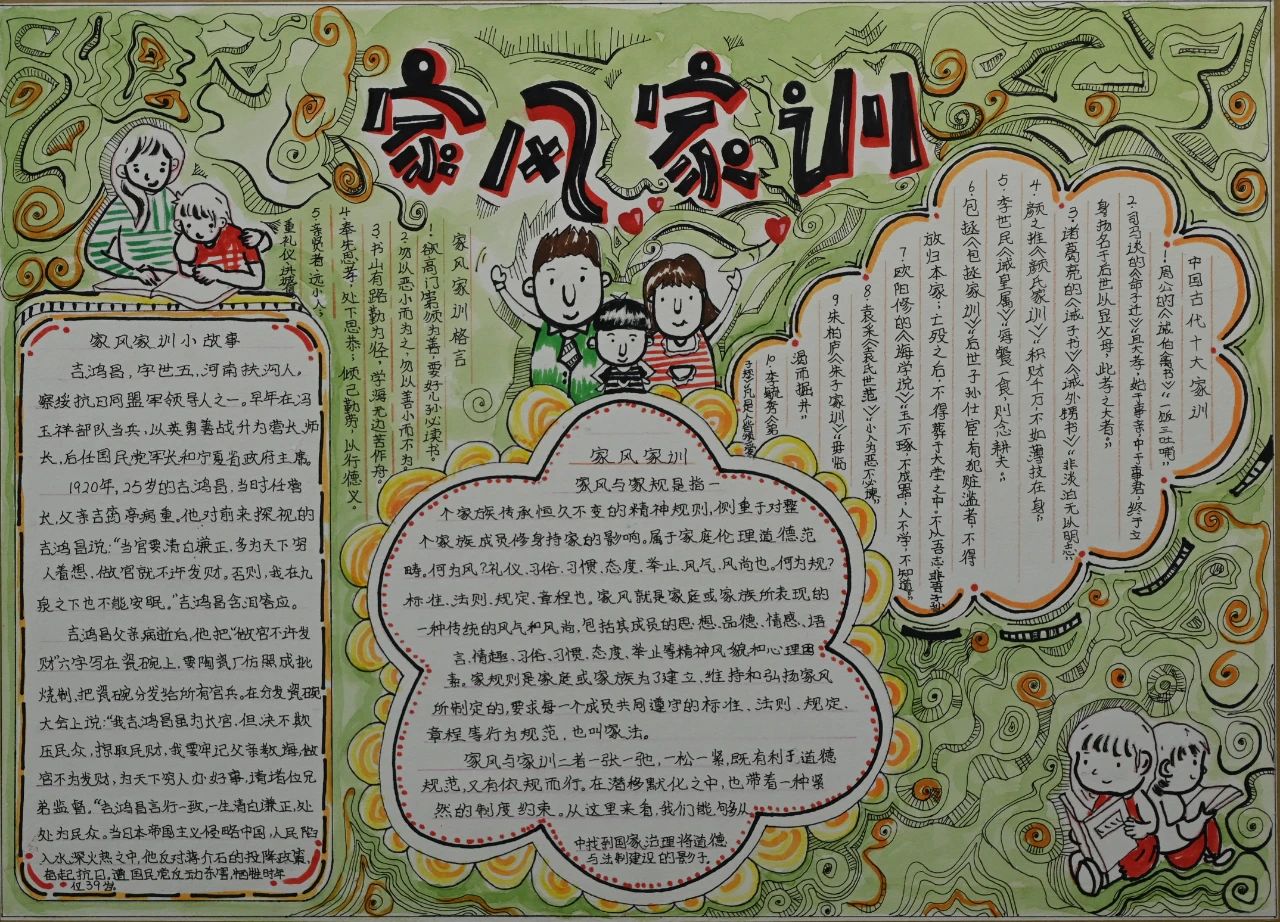 家风家训
家风家训小故事
吉鸿昌，字世五，河南扶沟人。
察绥抗日同盟军领导人之一。早年在冯
玉祥部队当兵，以英勇善战升为营长、师
长，后任国民党军长和宁夏省政府主席。
1920年，25岁的吉鸿昌，当时任营
长，父亲吉茵亭病重。他对前来探视的
吉鸿昌说：“当官要清白廉正，多为天下穷
人着想，做官就不许发财。否则，我在九
泉之下也不能安眠。”吉鸿昌含泪答应。
吉鸿昌父亲病逝后，他把“做官不许发
财”六字写在瓷碗上，要陶瓷厂仿照成批
烧制，把瓷碗分发给所有官兵。在分发瓷碗
大会上说：“我吉鸿昌虽为长官，但决不欺
压民众，掠取民财，我要牢记父亲教诲，做
官不为发财，为天下穷人办好事，请诸位兄
弟监督。”吉鸿昌言行一致，一生清白廉正，处
处为民众。当日本帝国主义侵略中国，人民陷
入水深火热之中，他反对蒋介石的投降政策，
奋起抗日，遭国民党反动杀害，牺牲时年
仅39岁。
家风家训格言
1、欲高门第须为善，要好儿孙必读书。
2、勿以恶小而为之，勿以善小而不为。
3、书山有路勤为径，学海无边苦作舟。
4、奉先思孝，处下思恭；倾己勤劳，以行德义。
5、亲贤者，远小人；
重礼仪，讲诚信
家风家训
家风与家规是指一
个家族传承恒久不变的精神规则，侧重于对整
个家族成员修身持家的影响，属于家庭伦理道德范
畴。何为风？礼仪、习俗、习惯、态度、举止、风气、风尚也。何为规？
标准、法则、规定、章程也。家风就是家庭或家族所表现的
一种传统的风气和风尚，包括其成员的思想、品德、情感、语
言、情趣、习俗、习惯、态度、举止等精神风貌和心理因
素。家规则是家庭或家族为了建立、维持和弘扬家风
所制定的，要求每一个成员共同遵守的标准、法则、规定、
章程等行为规范，也叫家法。
家风与家训二者一张一弛，一松一紧，既有利于道德
规范，又有依规而行。在潜移默化之中，也带着一种紧
然的制度约束。从这里来看，我们能够从
中找到国家治理将道德
与法制建设的影子
中国古代十大家训
1、周公的《诫伯禽书》“一饭三吐哺”
2、司马谈的《命子迁》“且夫孝，始于事亲，中于事君，终于立
身扬名于后世以显父母，此孝之大者”
3、诸葛亮的《诫子书》《诫外甥书》“非淡泊无以明志”
4、颜之推《颜氏家训》“积财千万不如薄技在身”
5、李世民《诫皇属》“每餐一食，则念耕夫”
6、包拯《包拯家训》“后世子孙仕宦有犯赃滥者，不得
放归本家；亡殁之后，不得葬于大茔之中。不从吾志，非吾子孙”
7、欧阳修的《诲学说》“玉不琢，不成器；人不学，不知道”
8、袁采《袁氏世范》“小人为恶不必谏”
9、朱柏庐《朱子家训》“毋临
渴而掘井”
10、李毓秀《弟
子规》“凡是人，皆须爱”